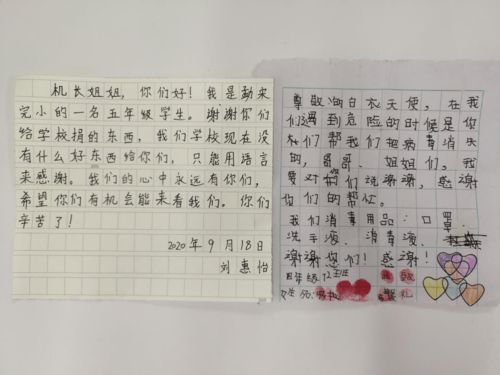 机长姐姐，你们好！我是勐宋
完小的一名五年级学生。谢谢你们
给学校捐的东西，我们学校现在没
有什么好东西给你们，只能用语言
来感谢。我们的心中永远有你们，
希望你们有机会能来看我们。你们
辛苦了！
2020年9月18日
刘惠怡
尊敬的白衣天使，在我
们遇到危险的时候是你
们帮我们把病毒消灭
的，哥哥、姐姐们，我
要对你们说谢谢，感谢
你们的帮忙。
我们消毒用品：口罩、
洗手液、消毒液、
谢谢您们！感谢！
四年级
敬礼